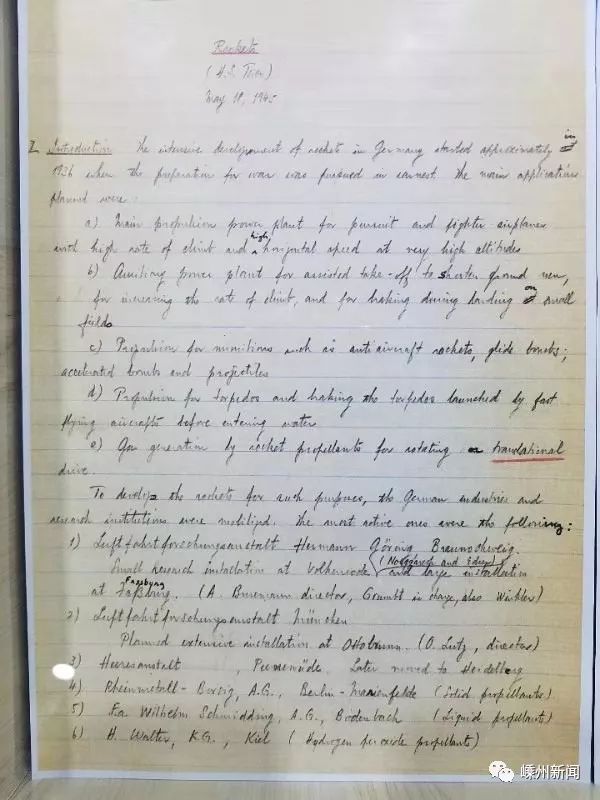 Rockets
(H.S. Tsien)
May 18, 1945
I Introduction The intensive development of rockets in Germany started approximately in
1936 when the preparation for war was pursued in earnest. The main applications
planned were:
a) Main propulsion power plant for pursuit and fighter airplanes
with high rate of climb and high horizontal speed at very high altitudes
b) Auxiliary power plant for assisted take-off to shorten ground run,
for increasing the rate of climb, and for braking during landing on small
fields
c) Propulsion for munitions such as antiaircraft rockets, glide bombs,
accelerated bombs and projectiles
d) Propulsion for torpedos and braking the torpedos launched by fast
flying aircrafts before entering water
e) Gas generation by rocket propellants for rotating or translational
drive.
To develop the rockets for such purposes, the German industries and
research institutions were mobilized. The most active ones were the following:
1) Luftfahrtforschungsanstalt Hermann Göring Braunschweig.
Small research installation at Volkenrode (Noeggerath and) and large installation
at Faßburg Fassburg. (A. Busemann director, in charge, also Winkler)
2) Luftfahrtforschungsanstalt München
Planned extensive installation at Ottobrunn. (O. Lutz, director)
3) Heeresanstalt , Peenemünde. Later moved to Heidelberg
4) Rheinmetall-Borsig, A.G., Berlin-Marienfelde (Solid propellants)
5) Fa. Wilhelm Schmidding, A.G., Bodenbach (Liquid propellants)
6) H. Walter, K.G., Kiel (Hydrogen peroxide propellants)
嵊州新闻